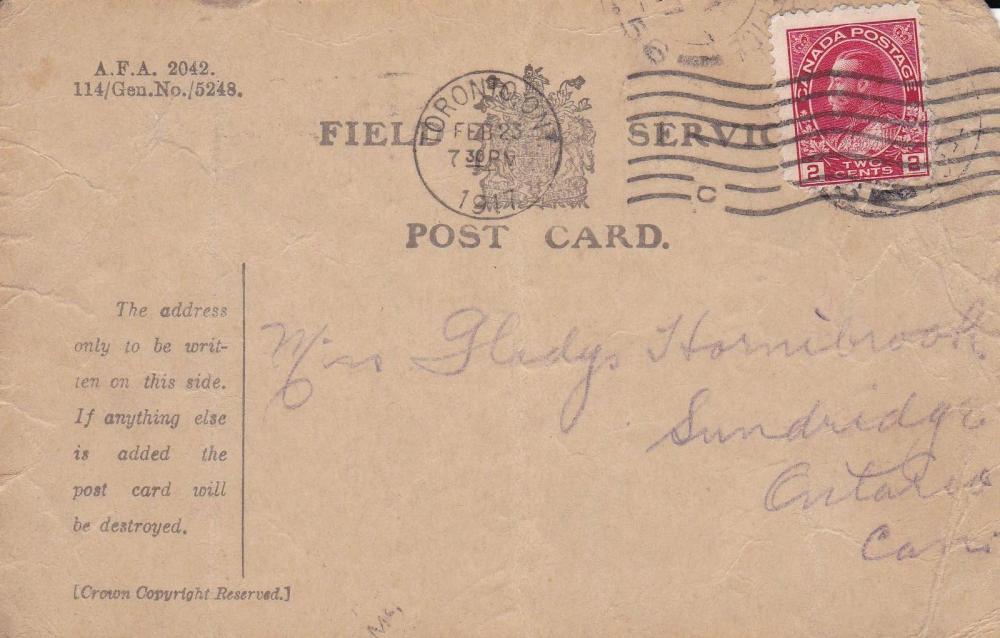 A.F.A. 2042.
114/Gen.No./5248.
FIELD SERVICE
POST CARD.
TORONTO ONT
FEB 23
7 30 PM
1917
C
CANADA POSTAGE
2 TWO CENTS 2
The address
only to be writ-
ten on this side.
If anything else
is added the
post card will
be destroyed.
[Crown Copyright Reserved.]
Mrs Gladys Hornibrook
Sundridge
Ontario